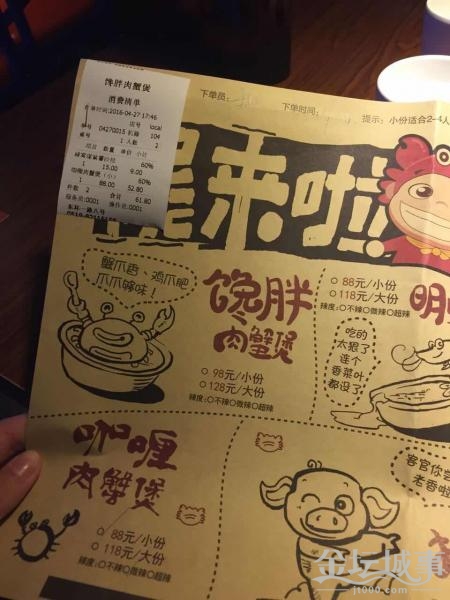 馋胖肉蟹煲
消费清单
时间:2016-04-27 17:46
店号 local
单号 04270015 机器 104
桌号 1 人数 2
项目 数量 单价 小计
60%
1 15.00 9.00
咖喱肉蟹煲(小) 60%
1 88.00 52.80
件数 2 合计 61.80
服务员:0001 操作员:0001
下单员:
下单时间:
提示:小份适合2-4人
来啦!
蟹爪香 鸡爪肥
爪爪够味!
馋胖
肉蟹煲
98元/小份
128元/大份
辣度:不辣 微辣 超辣
88元/小份
118元/大份
辣度:不辣 微辣 超辣
明
吃的
太狠了
连个
香菜叶
都没了!
咖喱
肉蟹煲
88元/小份
118元/大份
辣度:不辣 微辣 超辣
客官你
老香啦
金坛城事
jt000.com